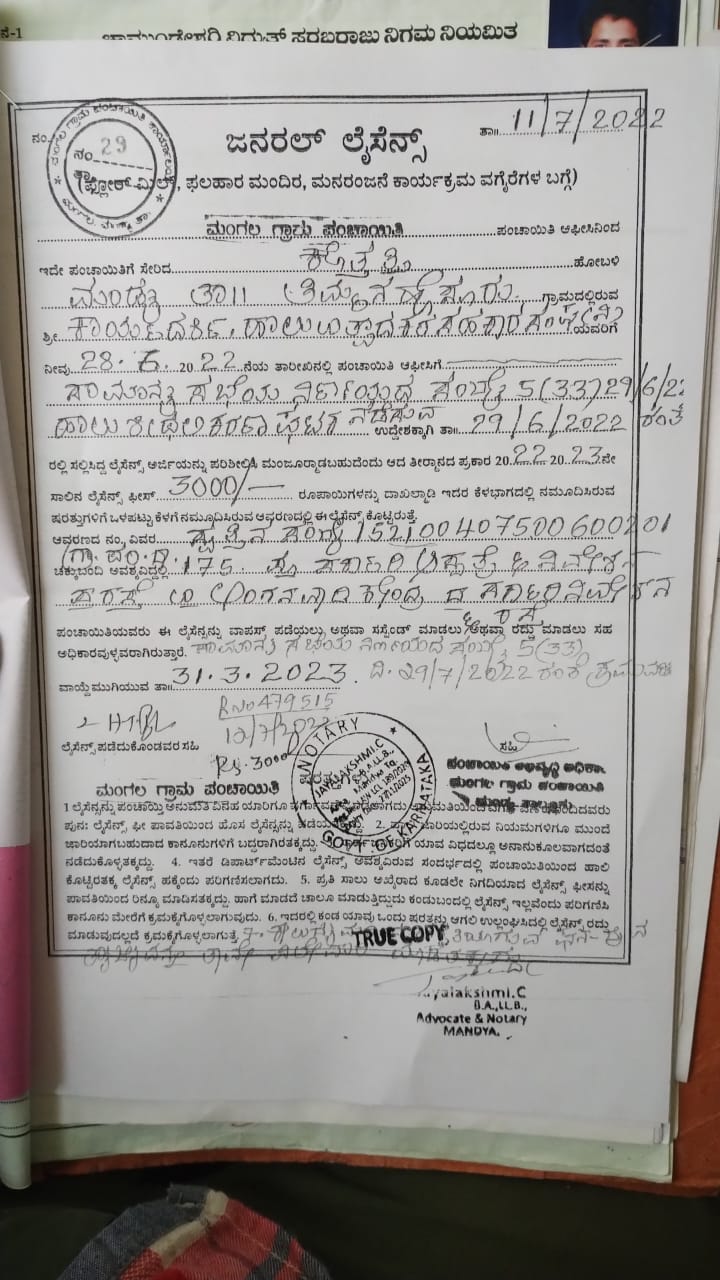 ನೆ-1
ಚಾಮುಂಡೇಶ್ವರಿ ವಿದ್ಯುತ್ ಸರಬರಾಜು ನಿಗಮ ನಿಯಮಿತ
ನಂ. 29
ತಾ॥ 11/7/2022
ಜನರಲ್ ಲೈಸೆನ್ಸ್
(ಫ್ಲೋರ್ ಮಿಲ್, ಫಲಹಾರ ಮಂದಿರ, ಮನರಂಜನೆ ಕಾರ್ಯಕ್ರಮ ವಗೈರೆಗಳ ಬಗ್ಗೆ)
ಮಂಗಲ ಗ್ರಾಮ ಪಂಚಾಯಿತಿ ಪಂಚಾಯಿತಿ ಆಫೀಸಿನಿಂದ
ಇದೇ ಪಂಚಾಯಿತಿಗೆ ಸೇರಿದ ಕೊತ್ತತ್ತಿ ಹೋಬಳಿ
ಮಂಡ್ಯ ತಾ॥ ಗ್ರಾಮದಲ್ಲಿರುವ
ಶ್ರೀ ಕಾರ್ಯದರ್ಶಿ, ಹಾಲು ಉತ್ಪಾದಕರ ಸಹಕಾರ ಸಂಘ (ನಿ) ಯವರಿಗೆ
ನೀವು 28.6.2022 ನೆಯ ತಾರೀಖಿನಲ್ಲಿ ಪಂಚಾಯಿತಿ ಆಫೀಸಿಗೆ
ಸಾಮಾನ್ಯ ಸಭೆಯ ನಿರ್ಣಯದ ಸಂಖ್ಯೆ 5(33) 29/6/22
ಹಾಲು ಶೀಥಲೀಕರಣ ಘಟಕ ನಡೆಸುವ ಉದ್ದೇಶಕ್ಕಾಗಿ ತಾ॥ 29/6/2022 ರಂತೆ
ರಲ್ಲಿ ಸಲ್ಲಿಸಿದ್ದ ಲೈಸೆನ್ಸ್ ಅರ್ಜಿಯನ್ನು ಪರಿಶೀಲಿಸಿ ಮಂಜೂರ್ಮಾಡಬಹುದೆಂದು ಆದ ತೀರ್ಮಾನದ ಪ್ರಕಾರ 2022 2023 ನೇ
ಸಾಲಿನ ಲೈಸೆನ್ಸ್ ಫೀಸ್ 3000/- ರೂಪಾಯಿಗಳನ್ನು ದಾಖಲ್ಮಾಡಿ ಇದರ ಕೆಳಭಾಗದಲ್ಲಿ ನಮೂದಿಸಿರುವ
ಷರತ್ತುಗಳಿಗೆ ಒಳಪಟ್ಟು ಕೆಳಗೆ ನಮ್ಮೂದಿಸಿರುವ ಆವರಣದಲ್ಲಿ ಈ ಲೈಸೆನ್ಸ್ ಕೊಟ್ಟಿರುತ್ತೆ.
ಆವರಣದ ನಂ, ವಿವರ ಸ್ವತ್ತಿನ ಸಂಖ್ಯೆ 152100407500600201
ಚಕ್ಕುಬಂದಿ ಅವಶ್ಯವಿದ್ದಲ್ಲಿ 175
ಪಂಚಾಯಿತಿಯವರು ಈ ಲೈಸೆನ್ಸನ್ನು ವಾಪಸ್ಸು ಪಡೆಯಲು, ಅಥವಾ ಸಸ್ಪೆಂಡ್ ಮಾಡಲು ಅಥವಾ ರದ್ದು ಮಾಡಲು ಸಹ
ಅಧಿಕಾರವುಳ್ಳವರಾಗಿರುತ್ತಾರೆ. ಸಾಮಾನ್ಯ ಸಭೆಯ ನಿರ್ಣಯದ ಸಂಖ್ಯೆ 5(33)
ವಾಯ್ದೆ ಮುಗಿಯುವ ತಾ॥ 31.3.2023. ದಿ. 29/7/2022 ರಂತೆ
R No 479515
ಲೈಸೆನ್ಸ್ ಪಡೆದುಕೊಂಡವರ ಸಹಿ
Rs. 3000
ಸಹಿ
ಪಂಚಾಯಿತಿ ಅಭಿವೃದ್ಧಿ ಅಧಿಕಾರಿ
ಮಂಗಲ ಗ್ರಾಮ ಪಂಚಾಯಿತಿ
ಮಂಡ್ಯ ತಾಲ್ಲೂಕು
NOTARY
JAYALAKSHMI.C
B.A.,LL.B.,
GOVT. OF KARNATAKA
ಮಂಗಲ ಗ್ರಾಮ ಪಂಚಾಯಿತಿ
ಪುನಃ ಲೈಸೆನ್ಸ್ ಫೀ ಪಾವತಿಯಿಂದ ಹೊಸ ಲೈಸೆನ್ಸನ್ನು ಜಾರಿಯಲ್ಲಿರುವ ನಿಯಮಗಳಿಗೂ ಮುಂದೆ
ಜಾರಿಯಾಗಬಹುದಾದ ಕಾನೂನುಗಳಿಗೆ ಬದ್ದರಾಗಿರತಕ್ಕದ್ದು. ಯಾವ ವಿಧದಲ್ಲೂ ಅನಾನುಕೂಲವಾಗದಂತೆ
ನಡೆದುಕೊಳ್ಳತಕ್ಕದ್ದು. 4. ಇತರೆ ಡಿಪಾರ್ಟ್‌ಮೆಂಟಿನ ಲೈಸೆನ್ಸ್ ಅವಶ್ಯವಿರುವ ಸಂದರ್ಭದಲ್ಲಿ ಪಂಚಾಯಿತಿಯಿಂದ ಹಾಲಿ
ಕೊಟ್ಟಿರತಕ್ಕ ಲೈಸೆನ್ಸ್ ಹಕ್ಕೆಂದು ಪರಿಗಣಿಸಲಾಗದು. 5. ಪ್ರತಿ ಸಾಲು ಅಖೈರಾದ ಕೂಡಲೇ ನಿಗದಿಯಾದ ಲೈಸೆನ್ಸ್ ಫೀಸನ್ನು
ಪಾವತಿಯಿಂದ ರಿನ್ಯೂ ಮಾಡಿಸತಕ್ಕದ್ದು. ಹಾಗೆ ಮಾಡದೆ ಚಾಲೂ ಮಾಡುತ್ತಿದ್ದುದು ಕಂಡುಬಂದಲ್ಲಿ ಲೈಸೆನ್ಸ್ ಇಲ್ಲವೆಂದು ಪರಿಗಣಿಸಿ
ಕಾನೂನು ಮೇರೆಗೆ ಕ್ರಮಕೈಗೊಳ್ಳಲಾಗುವುದು. 6. ಇದರಲ್ಲಿ ಕಂಡ ಯಾವು ಒಂದು ಷರತ್ತನ್ನು ಆಗಲಿ ಉಲ್ಲಂಘಿಸಿದ್ದಲ್ಲಿ ಲೈಸೆನ್ಸ್ ರದ್ದು
ಮಾಡುವುದಲ್ಲದೆ ಕ್ರಮಕೈಗೊಳ್ಳಲಾಗುತ್ತೆ
TRUE COPY
Jayalakshmi.C
B.A.,LL.B.,
Advocate & Notary
MANDYA.